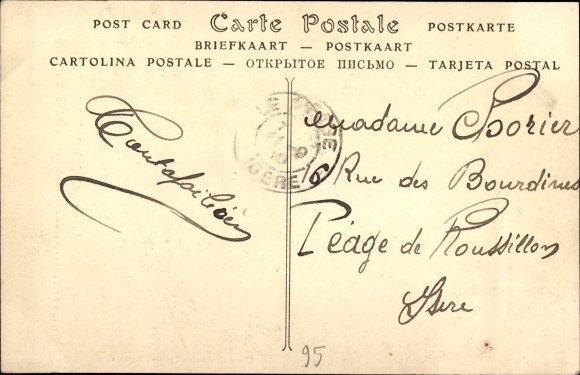 POST CARD Carte Postale POSTKARTE
BRIEFKAART — POSTKAART
CARTOLINA POSTALE — ОТКРЫТОЕ ПИСЬМО — TARJETA POSTAL
Madame
Rue des Bourdines
Péage de Roussillon
Isere
ISERE
95